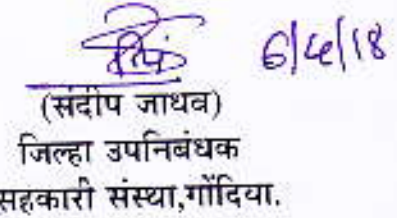 6/4/18
(संदीप जाधव)
जिल्हा उपनिबंधक
सहकारी संस्था,गोंदिया.